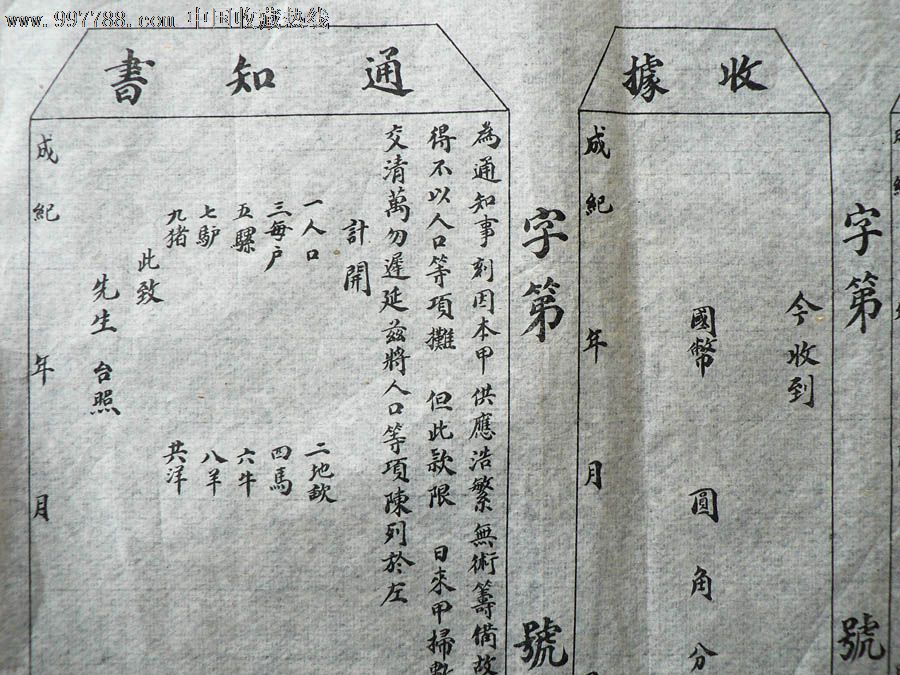 www.997788.com 中国收藏热线
字第 號
收據
今收到
國幣 圓 角 分
成紀 年 月
字第 號
通知書
為通知事刻因本甲供應浩繁無術籌備故
得不以人口等項攤 但此款限 日來甲掃數
交清萬勿遲延茲將人口等項陳列於左
計開
一人口 二地畝
三每户 四馬
五騾 六牛
七驴 八羊
九猪 共洋
此致
先生 台照
成紀 年 月